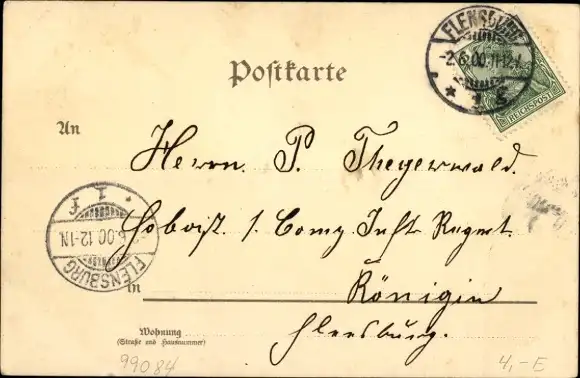 FLENSBURG
-2.6.00.11-12
* 1 S
REICHSPOST
Postkarte
An
Herrn. P. Theyerwald.
Hoboist 1. Comp. Inft. Regemt.
Königin
Flensburg.
in
* 1 F
6.00.12-1N.
FLENSBURG
Wohnung
(Straße und Hausnummer)
99084
4,-E